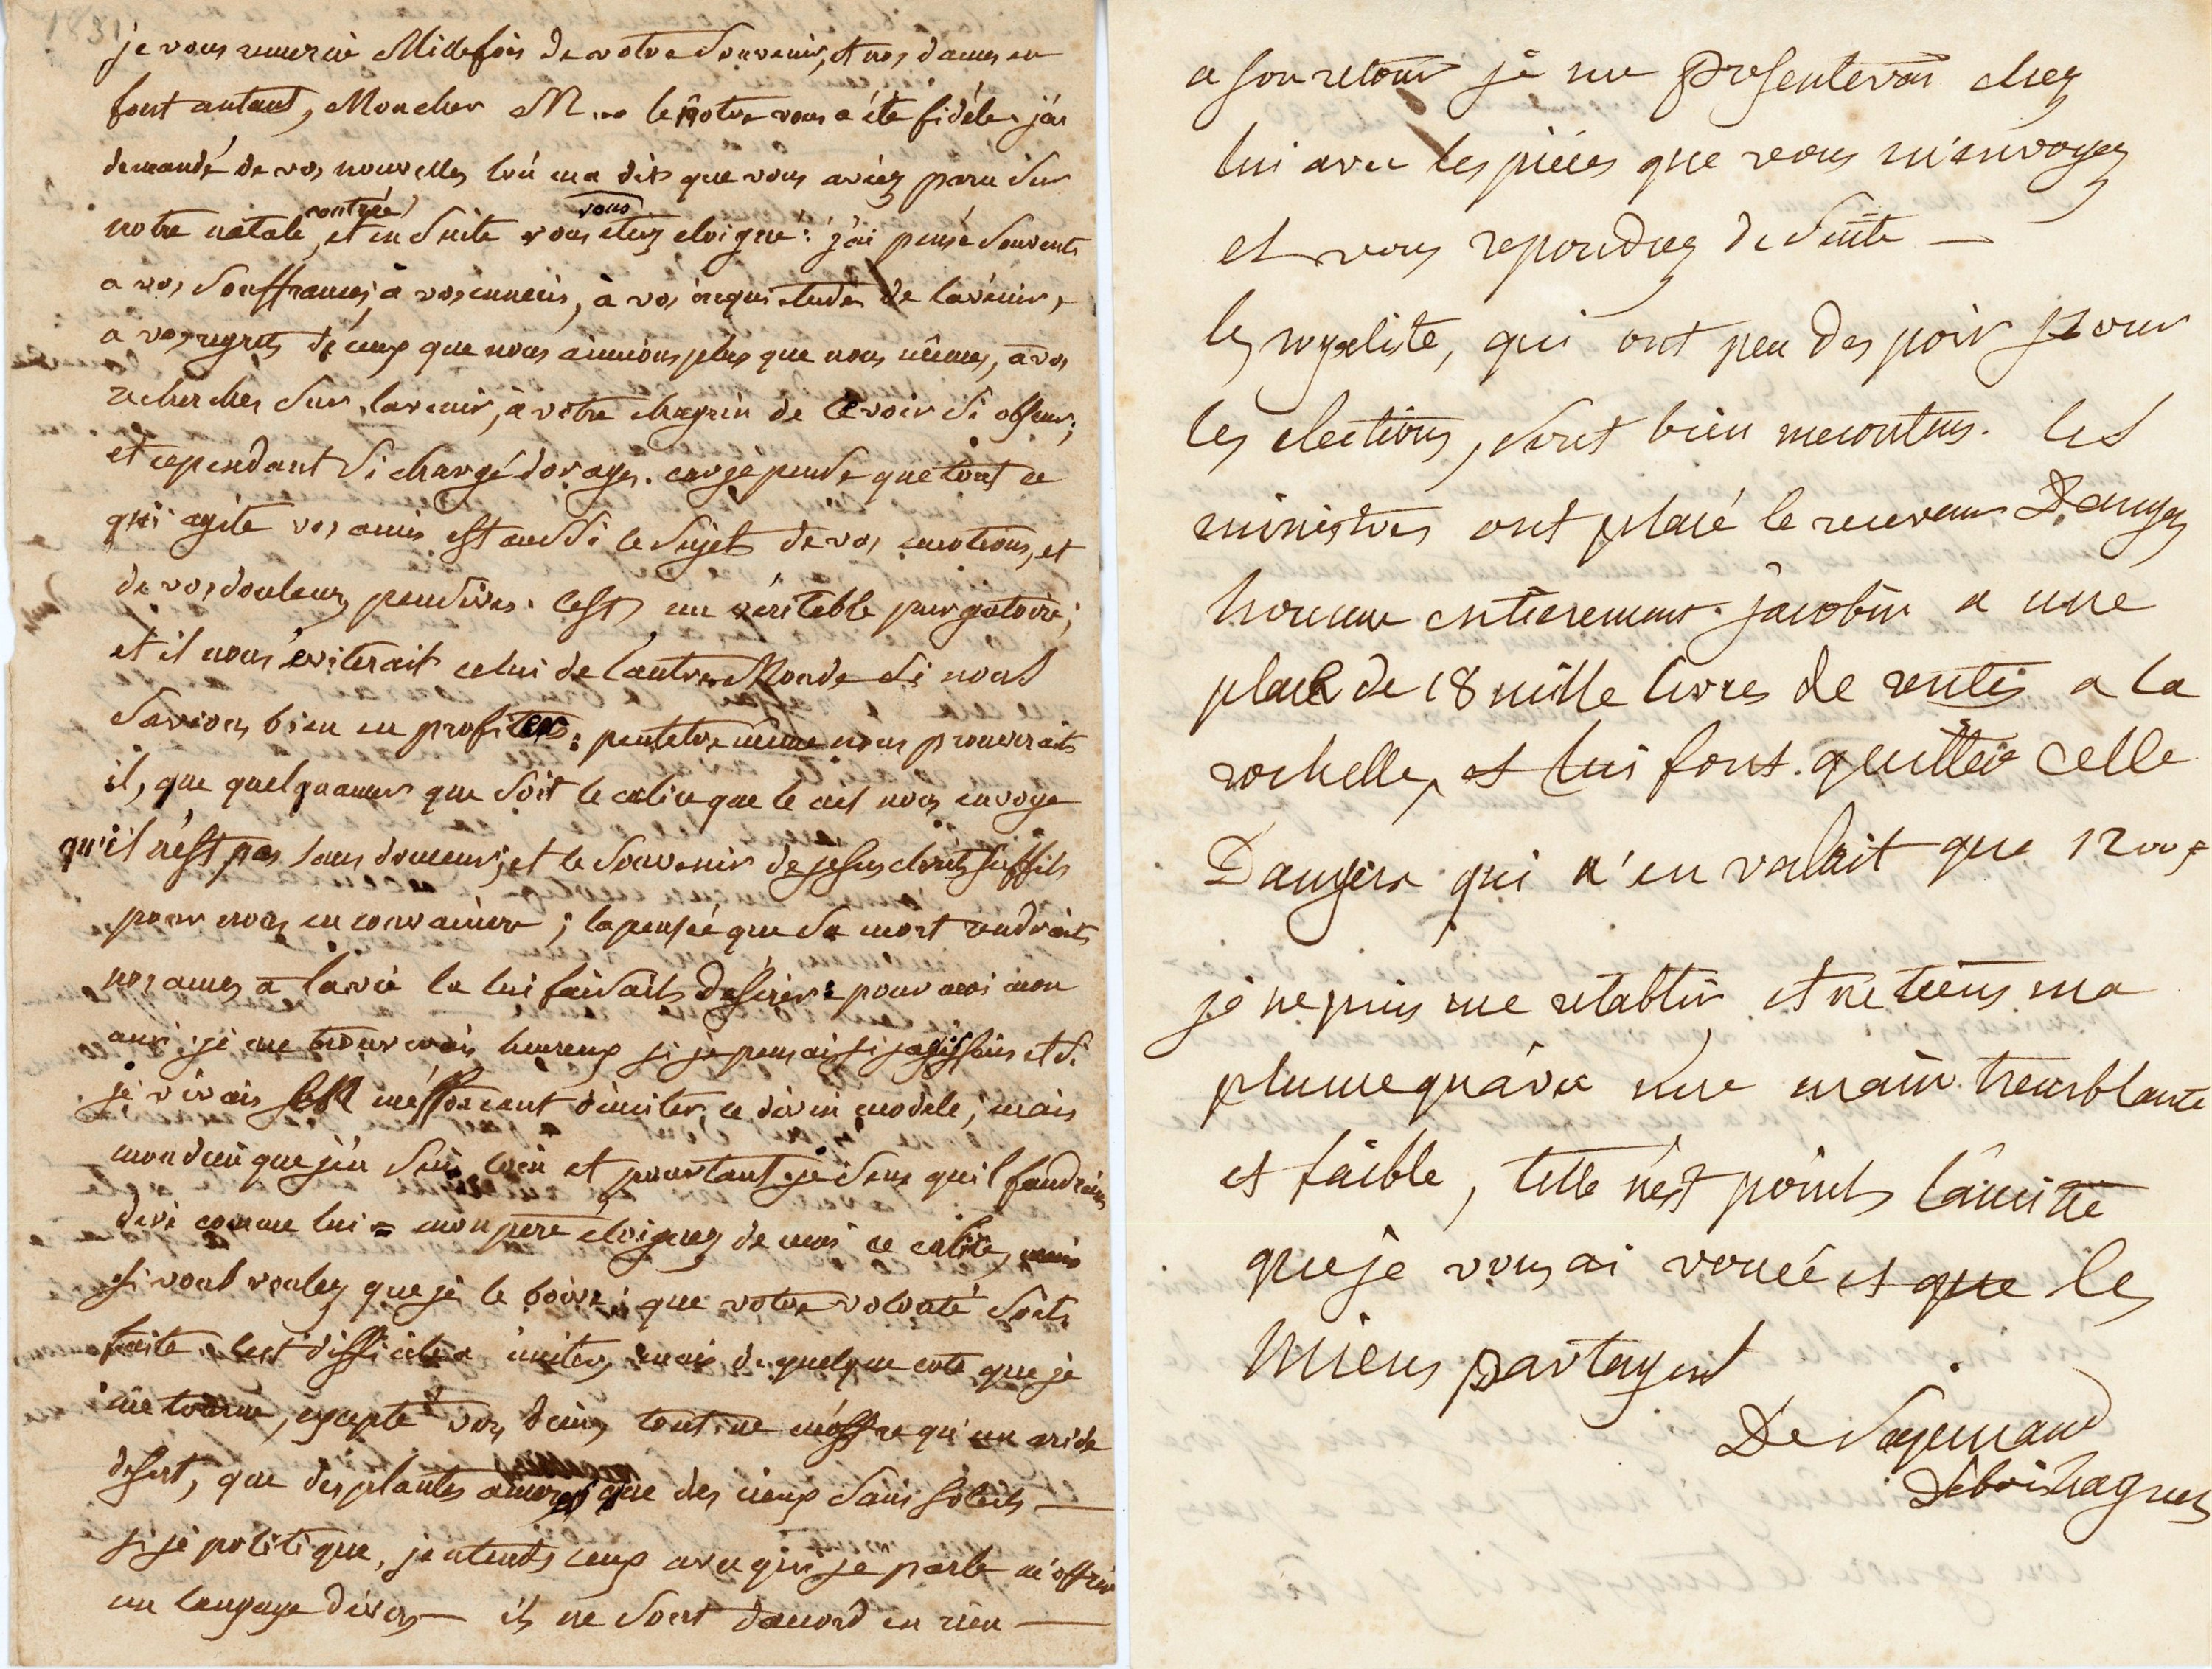 1831
je vous remercie Mille fois de votre Souvenir, et nos dames en
font autant, Mon cher M... le notre vous a été fidéle. j'ai
demandé de vos nouvelles lon ma dit que vous aviez paru Sur
notre natale contrée, et en Suite vous vous etiez eloigné : j'ai pensé Souvent
a vos Souffrances, à vos ennuis, à vos inquietudes de lavenir,
a vos regrets de ceux que nous aimions plus que nous mêmes, a vos
recherches Sur lavenir, à votre chagrin de le voir Si obscur,
et cependant Si chargé dorages. car je pense que tout ce
qui agite vos amis est aussi le Sujet de vos emotions, et
de vos douleurs pensives. cest un véritable purgatoire ;
et il nous eviterait celui de lautre Monde Si nous
Savions bien en profiter : peutetre même nous prouverait
il, que quelquamer que Soit le calice que le ciel nous envoye
qu'il n'est pas sans douceur, et le Souvenir de jesus christ Suffit
pour nous en convaincre ; la pensée que Sa mort rendrait
nos ames a la vie la lui faisait desirer : pour moi mon
ami je me trouverais heureux si je pensais si jagissais et Si
je vivais en m'efforcant dimiter ce divin modele, mais
mon dieu que j'en Suis loin et pourtant je Sens quil faudrait
dire comme lui = mon pere eloignez de moi ce calice, mais
si vous voulez que je le boive, que votre volonté Soit
faite. cest difficile a imiter, mais de quelque coté que je
me tourne, excepté vers dieu, tout ne m'offre qu'un aride
desert, que des plantes ameres que des cieux Sans Soleils —
si je politique, jentends ceux avec qui je parle m'offrir
un langage divers — ils ne Sont daccord en rien —
a son retour je me presenterai chez
lui avec les pièces que vous m'envoyez
et vous repondrez de Suite —
les royaliste, qui ont peu despoir pour
les elections, sont bien mecontens. les
ministres ont placé le receveur Dangers
homme entierement jacobin a une
place de 18 mille livres de rentes a la
rochelle, et lui font quitter celle
Dangers qui n'en valait que 12000
je ne puis me retablir, et ne tiens ma
plume quavec une main tremblante
et faible, telle n'est point lamitié
que je vous ai vouée et que les
miens partagent
De Sapinaud
Deboishuguet